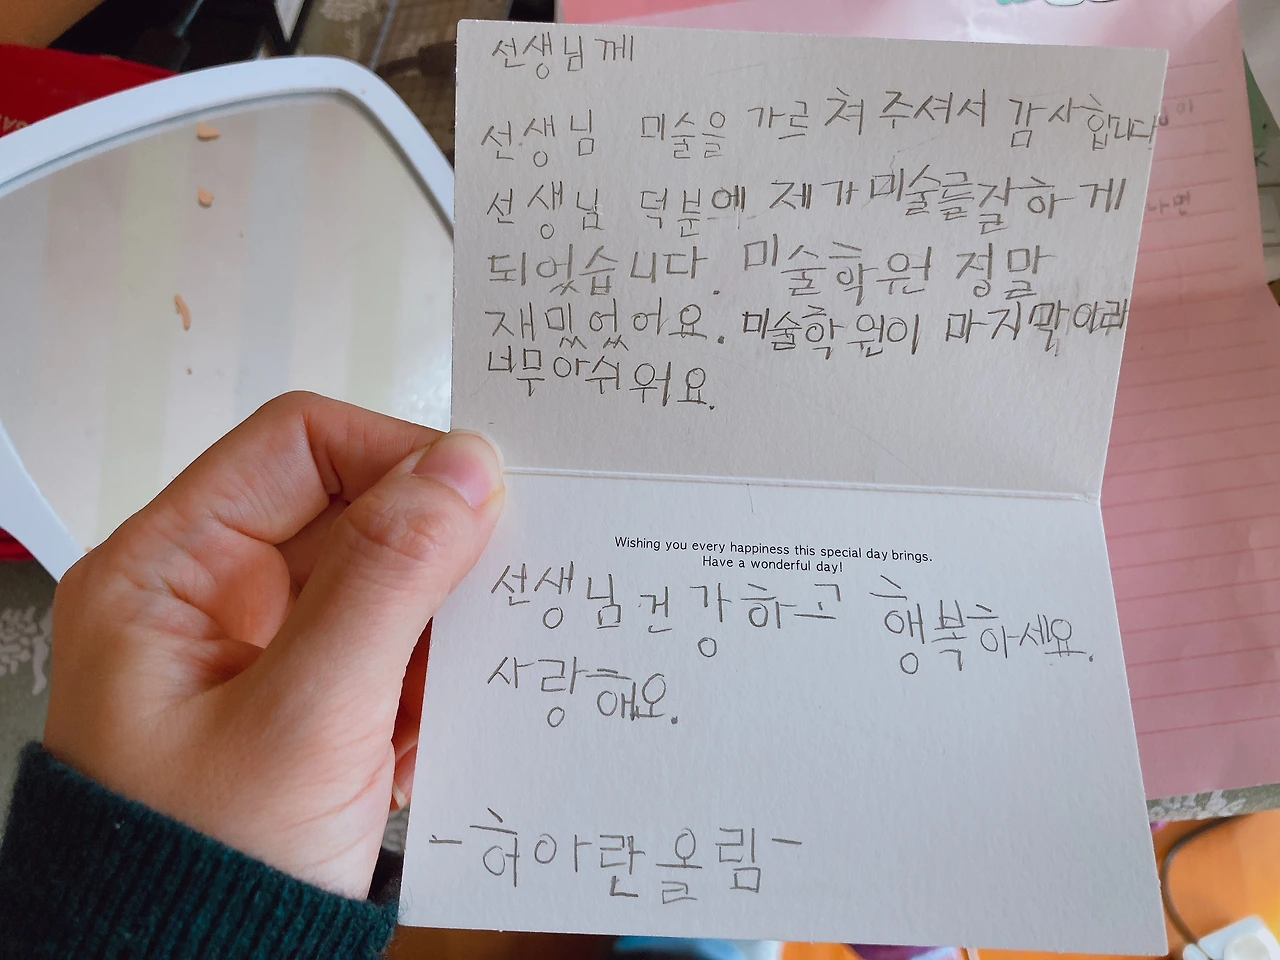 선생님께
선생님 미술을 가르쳐 주셔서 감사합니다
선생님 덕분에 제가 미술를잘하게
되었습니다. 미술학원 정말
재밌었어요. 미술학원이 마지막이라
너무아쉬워요.
Wishing you every happiness this special day brings.
Have a wonderful day!
선생님 건강하고 행복하세요.
사랑해요.
-허아란올림-